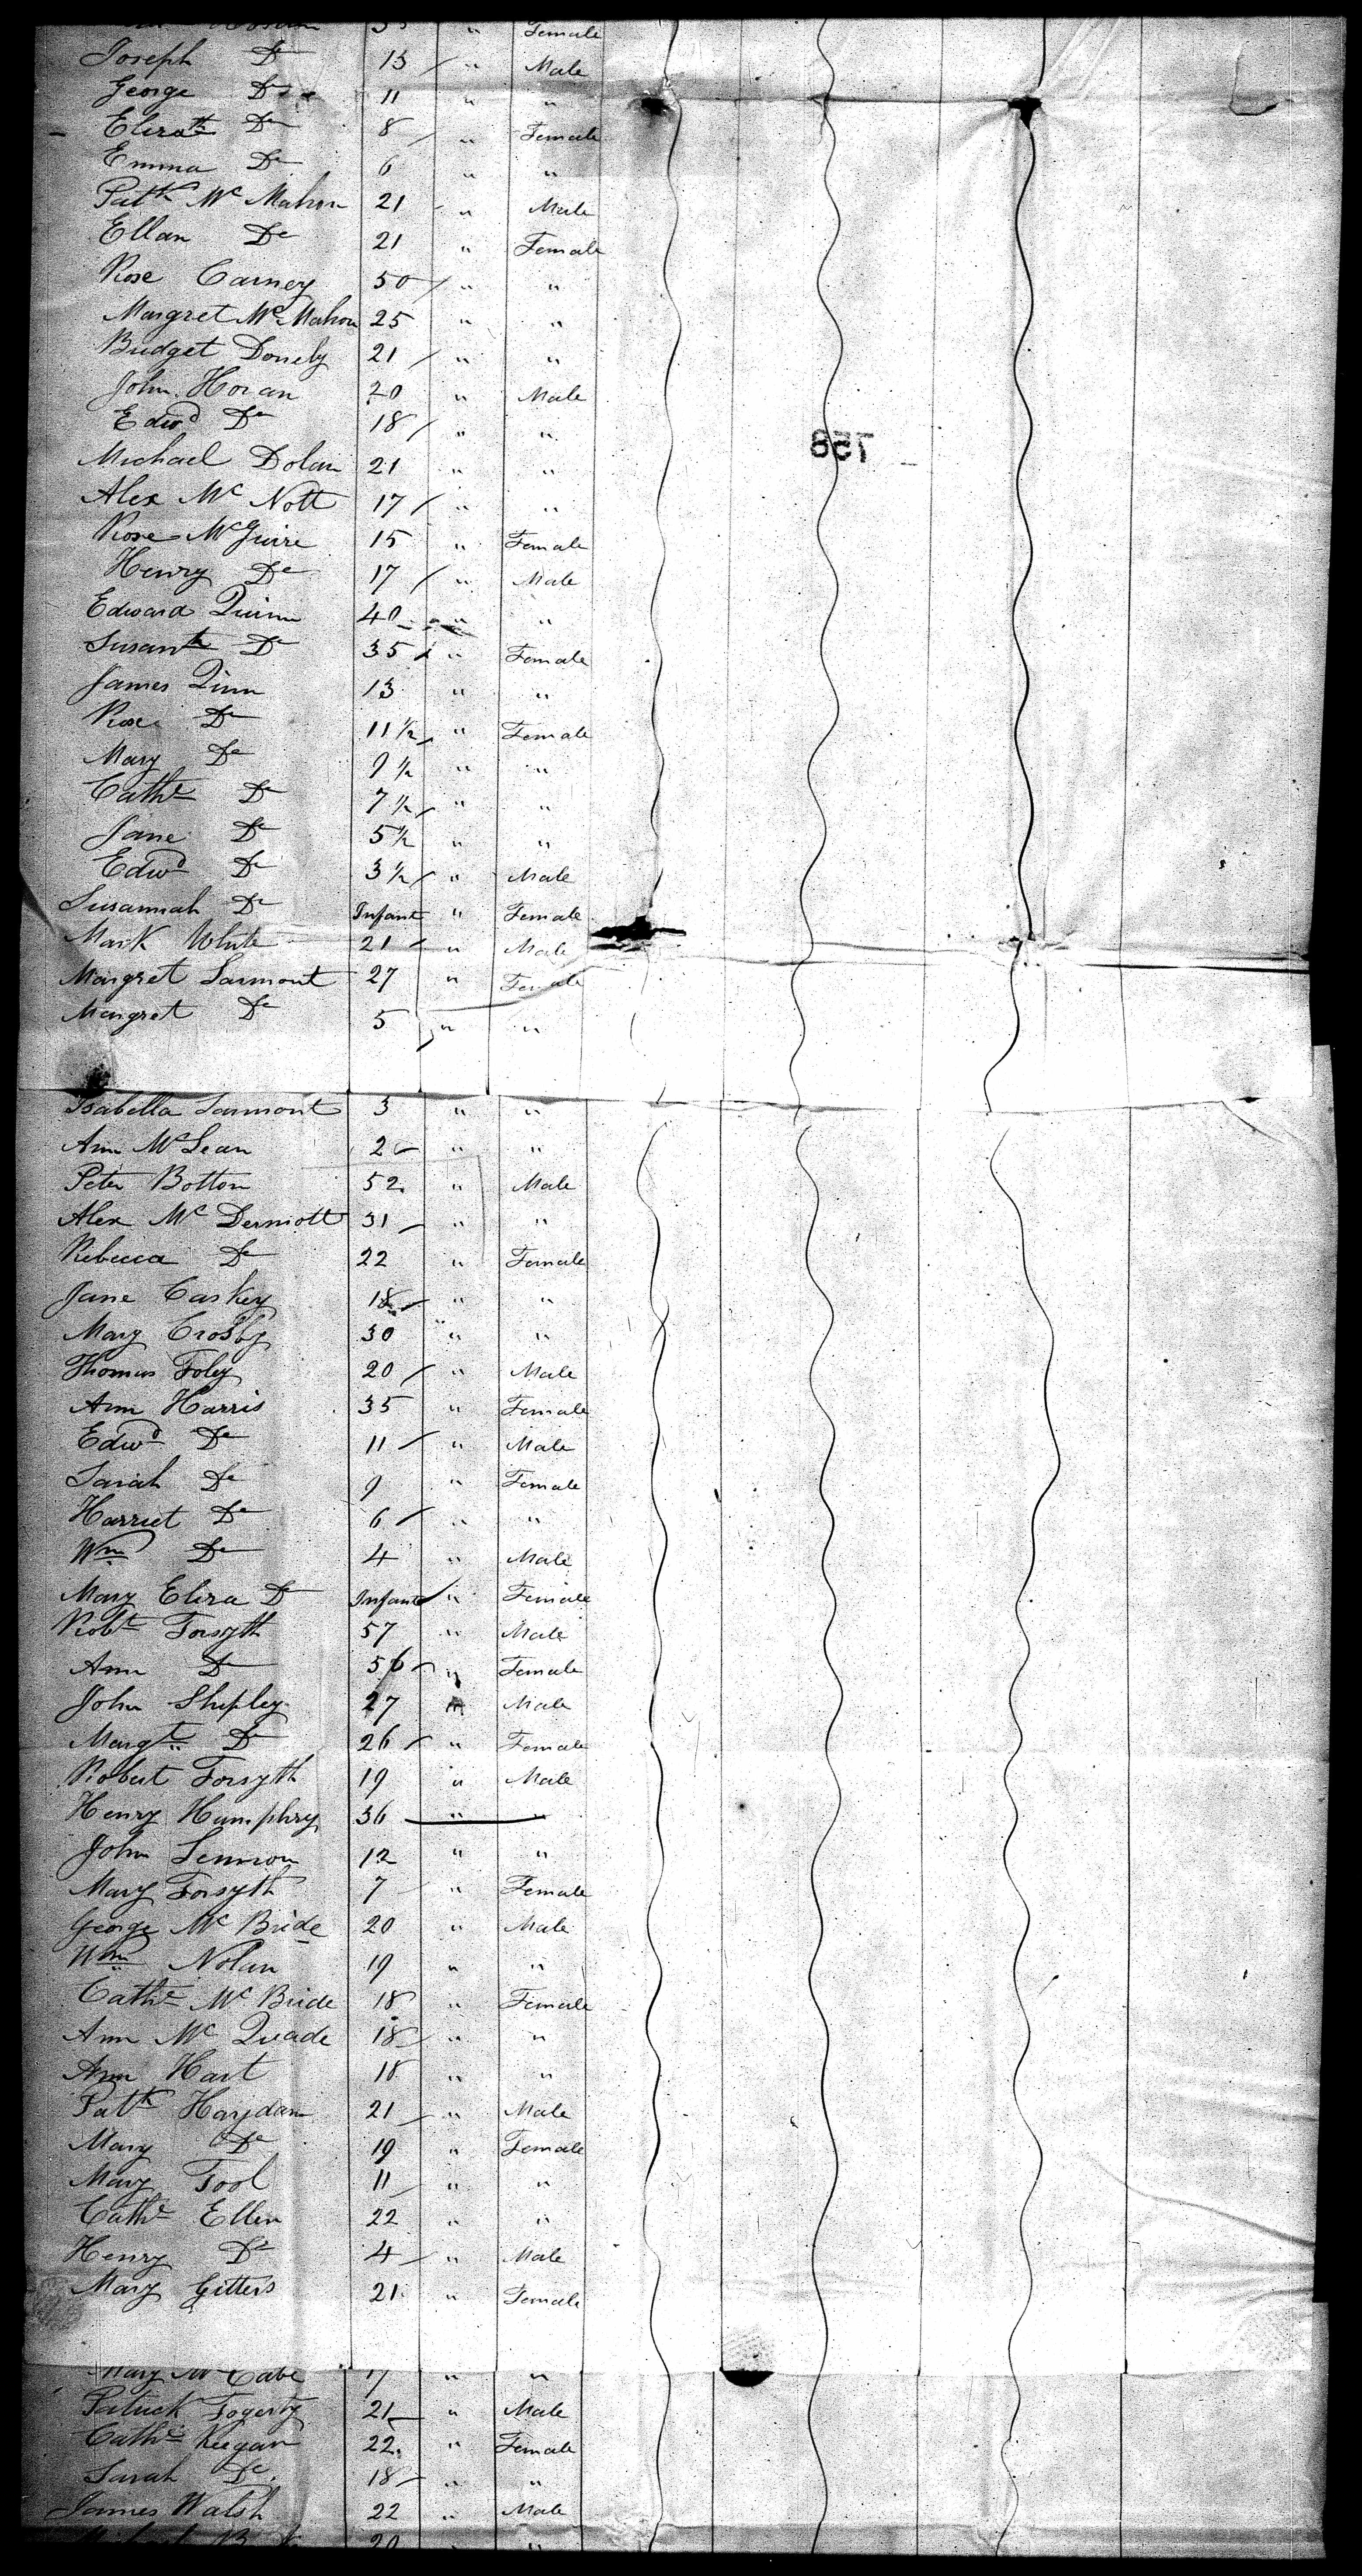 35 " Female
Joseph Do 13 " Male
George Do 11 " "
Elizath Do 8 " Female
Emma Do 6 " "
Patk Mc Mahon 21 " Male
Ellan Do 21 " Female
Rose Carney 50 " "
Margret Mc Mahon 25 " "
Bridget Donely 21 " "
John Horan 20 " Male
Edwd Do 18 " "
758
Michael Dolan 21 " "
Alex Mc Nott 17 " "
Rose McGuire 15 " Female
Henry Do 17 " Male
Edward Quinn 40 " "
Susanh Do 35 " Female
James Qinn 13 " "
Rose Do 11 1/2 " Female
Mary Do 9 1/2 " "
Cathe Do 7 1/2 " "
Jane Do 5 1/2 " "
Edwd Do 3 1/2 " Male
Susannah Do Infant " Female
Mark White 21 " Male
Margret Lamont 27 " Female
Margret Do 5 " "
Isabella Lamont 3 " "
Ann McLean 2 " "
Peter Botton 52 " Male
Alex Mc Dermott 31 " "
Rebecca Do 22 " Female
Jane Caskey 18 " "
Mary Crosby 30 " "
Thomas Foley 20 " Male
Ann Harris 35 " Female
Edwd Do 11 " Male
Sarah Do 9 " Female
Harriet Do 6 " "
Wm Do 4 " Male
Mary Eliza Do Infant " Female
Robt Forsyth 57 " Male
Ann Do 56 " Female
John Shipley 27 " Male
Margt Do 26 " Female
Robert Forsyth 19 " Male
Henry Humphry 36 " "
John Lennon 12 " "
Mary Forsyth 7 " Female
George Mc Bride 20 " Male
Wm Nolan 19 " "
Cathe Mc Bride 18 " Female
Ann Mc Quade 18 " "
Ann Hart 18 " "
Patk Harjdan 21 " Male
Mary Do 19 " Female
Mary Tool 11 " "
Cathe Ellen 22 " "
Henry Do 4 " Male
Mary Gitters 21 " Female
Mary Mc Cabe 17 " "
Patrick Fogerty 21 " Male
Cathe Keegan 22 " Female
Sarah Do 18 " "
James Walsh 22 " Male
Michael 20 " "